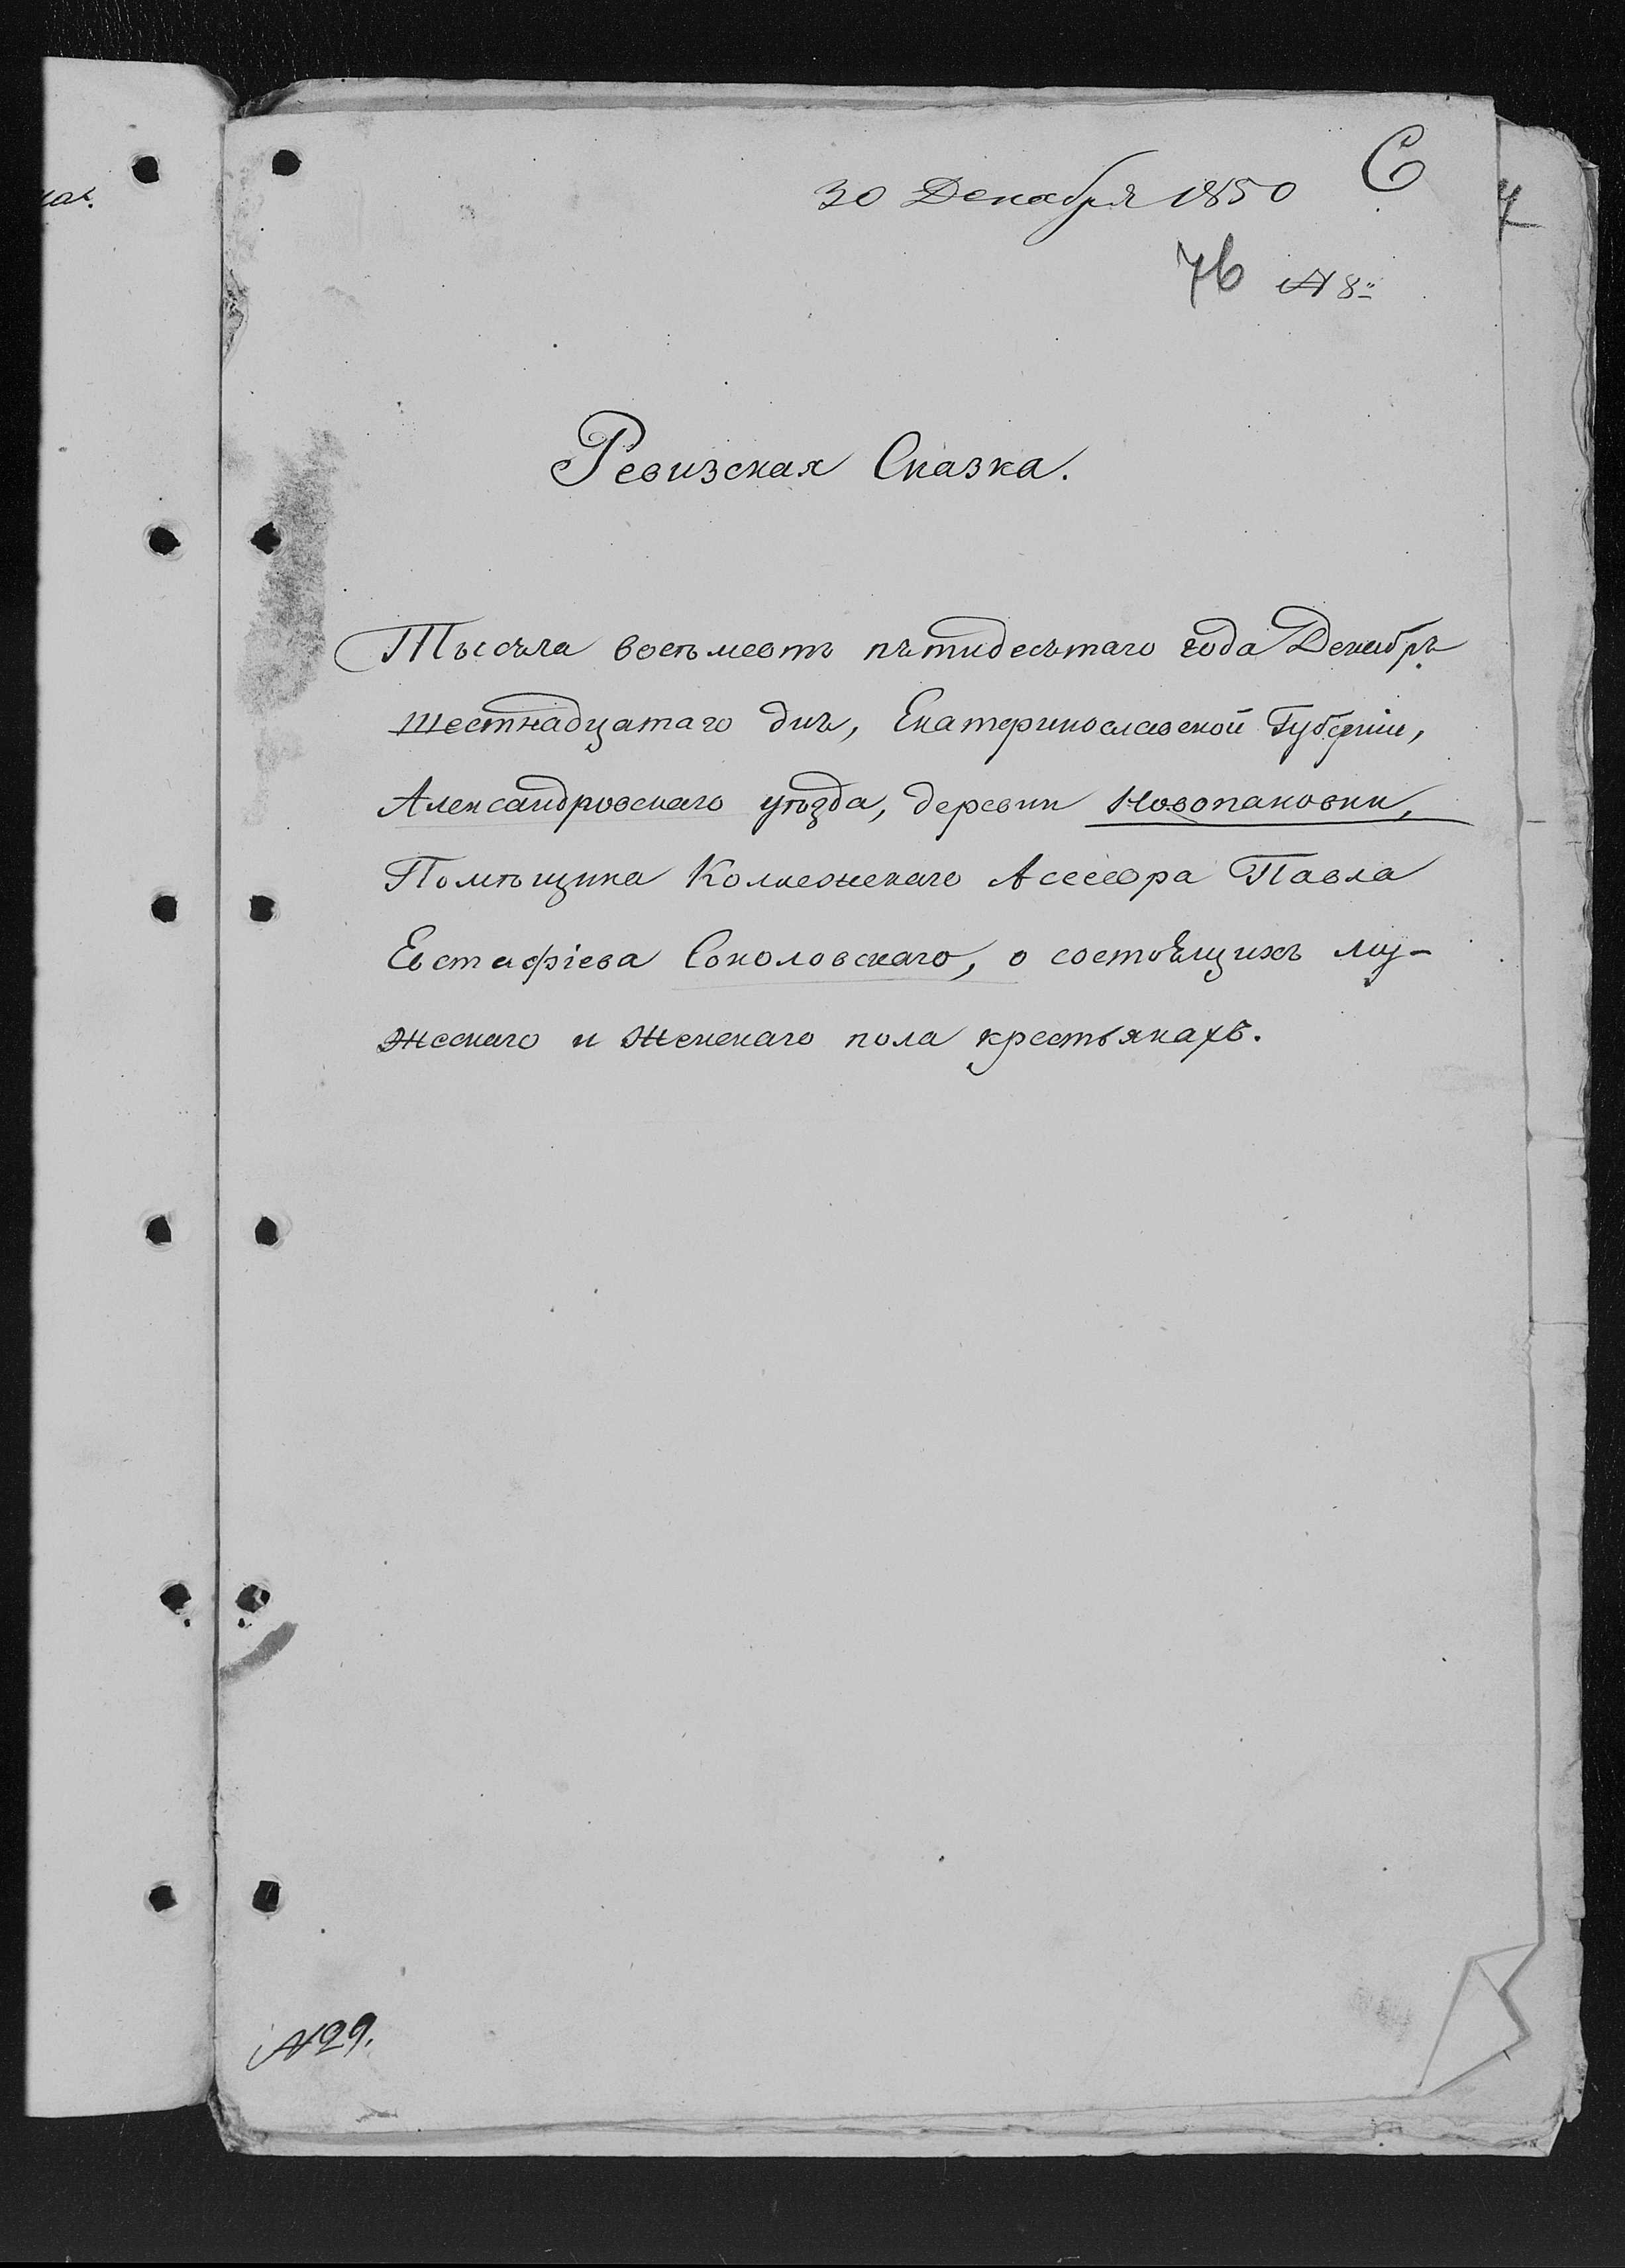 30 Декабря 1850 С
76 № 8й
Ревизская Сказка.
Тысяча восѣмсотъ пятидесятаго года Декабря
шестнадцатаго дня, Екатеринославской Губерніи,
Александровскаго уѣзда, деревни Новопановки,
Помѣщика Коллежскаго Асессора Павла
Евстафіева Соколовскаго, о состоящихъ му-
жескаго и женскаго пола крестьянахъ.
№ 29.